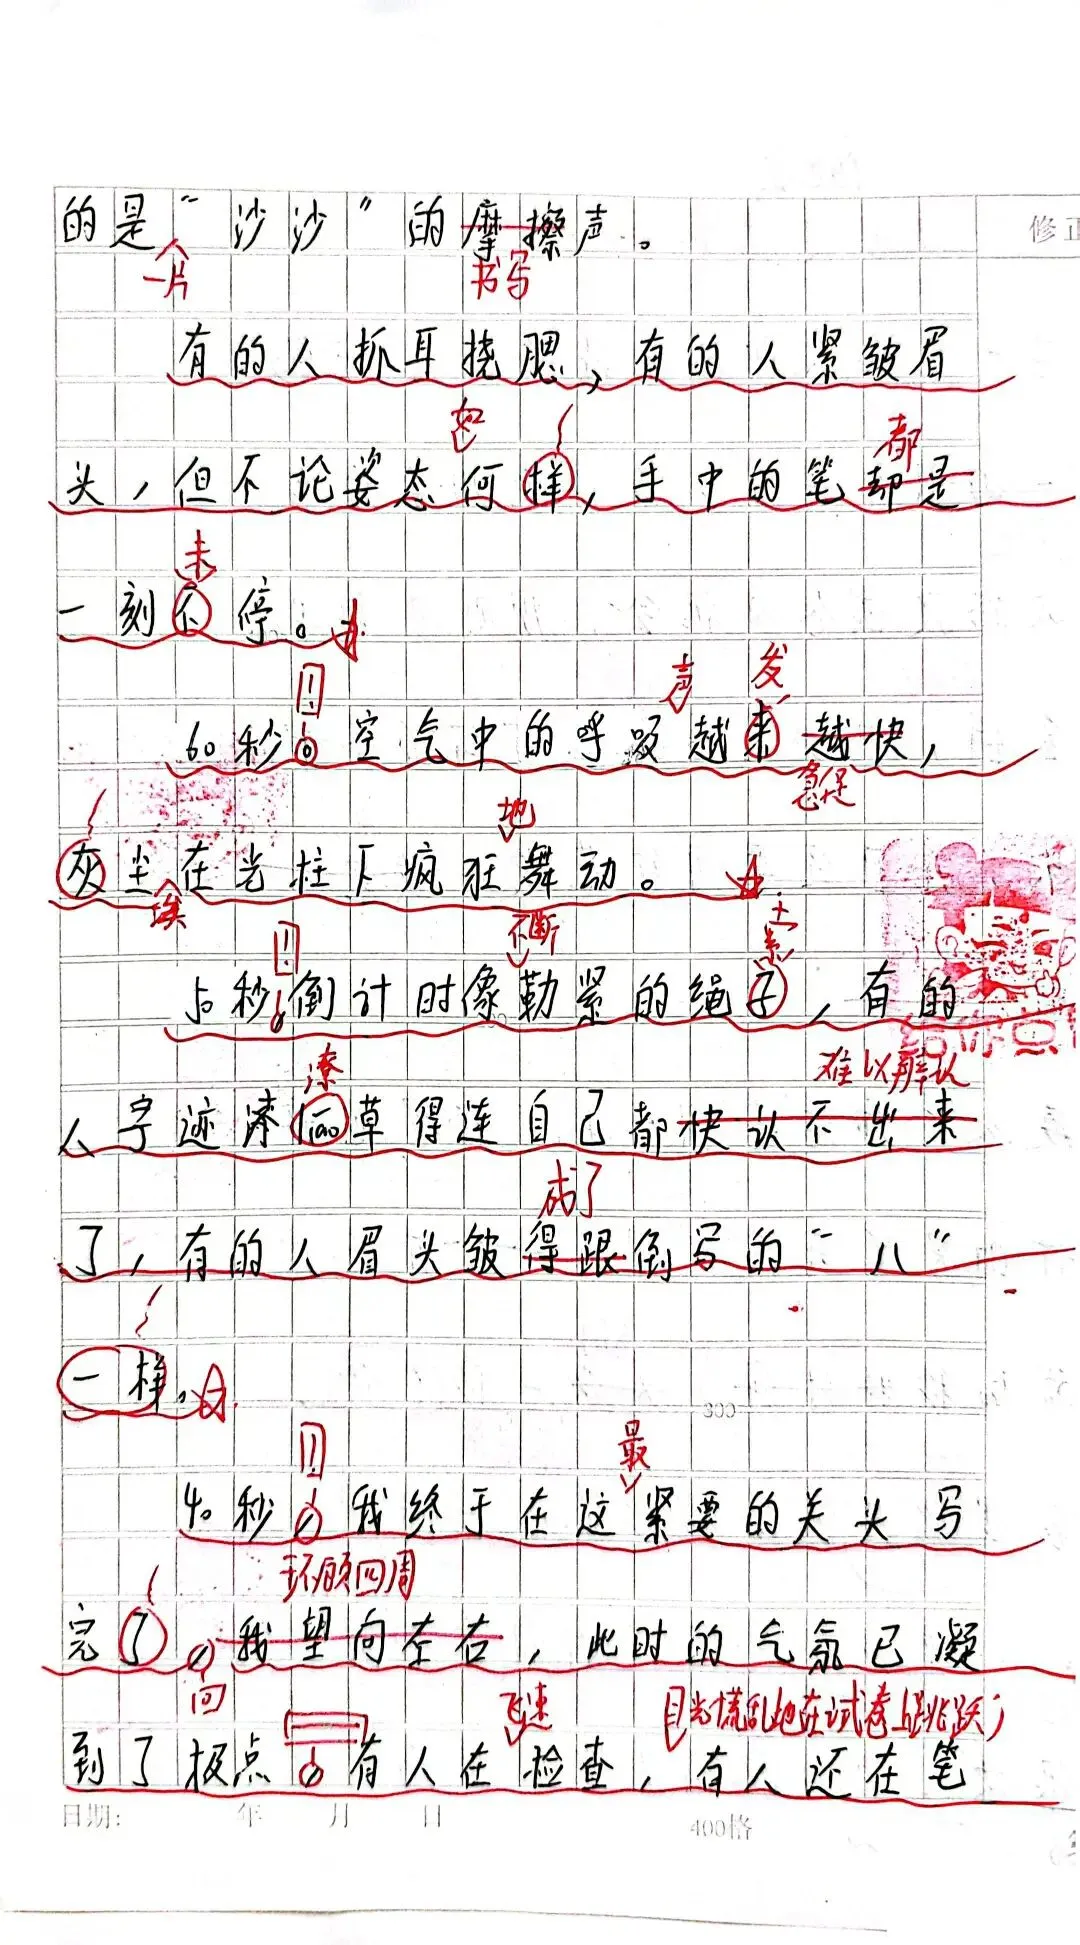 的是“沙沙”的摩擦声。
修正
一片
书写
有的人抓耳挠腮，有的人紧皱眉
都
头，但不论姿态何样，手中的笔却是
未
一刻不停。
声 发
60秒。空气中的呼吸越来越快，
急促
地
灰尘在光柱下疯狂舞动。
埃
不断
索
50秒，倒计时像勒紧的绳子，有的
给你点
潦
难以辨认
人字迹潦lao草得连自己都快认不出来
成了
了，有的人眉头皱得跟倒写的“八”
一样。
300
最
40秒，我终于在这紧要的关头写
环顾四周
完了，我望向左右，此时的气氛已凝
回
飞速
目光慌乱地在试卷上跳跃；
到了极点，有人在检查，有人还在笔
日期: 年 月 日
400格